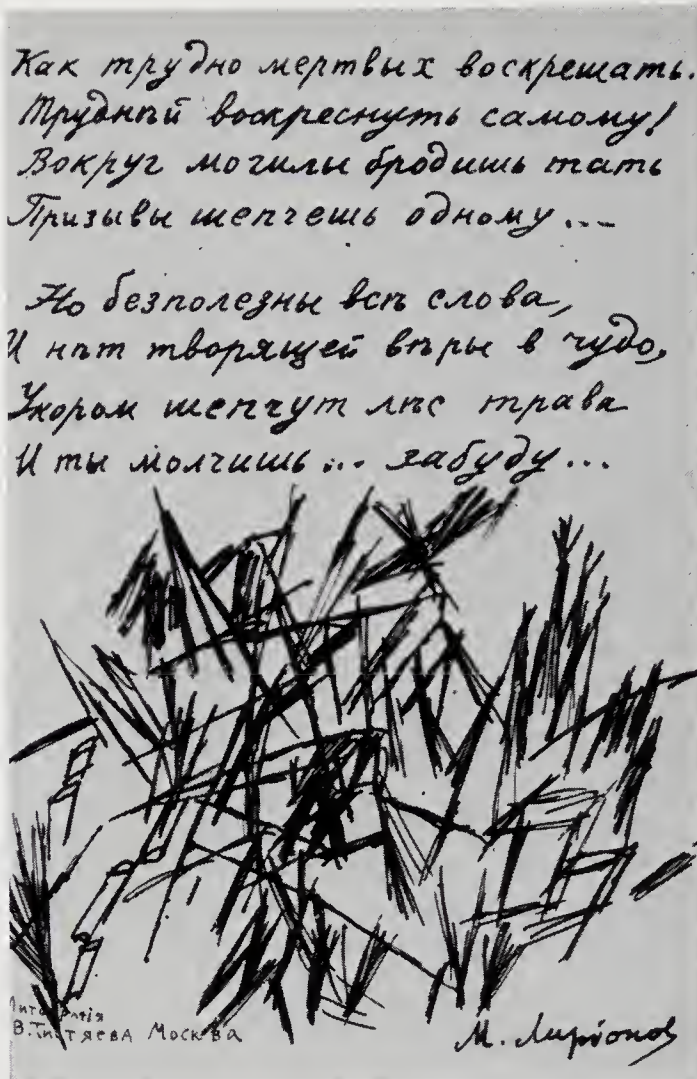 Как трудно мертвых воскрешать.
Труднѣй воскреснуть самому!
Вокруг могилы бродишь тать
Призывы шепчешь одному...
Но безполезны всѣ слова,
И нѣт творящей вѣры в чудо,
Укором шепчут лѣс трава
И ты молчишь... забуду...
В. Титяева Москва
М. Ларіонов